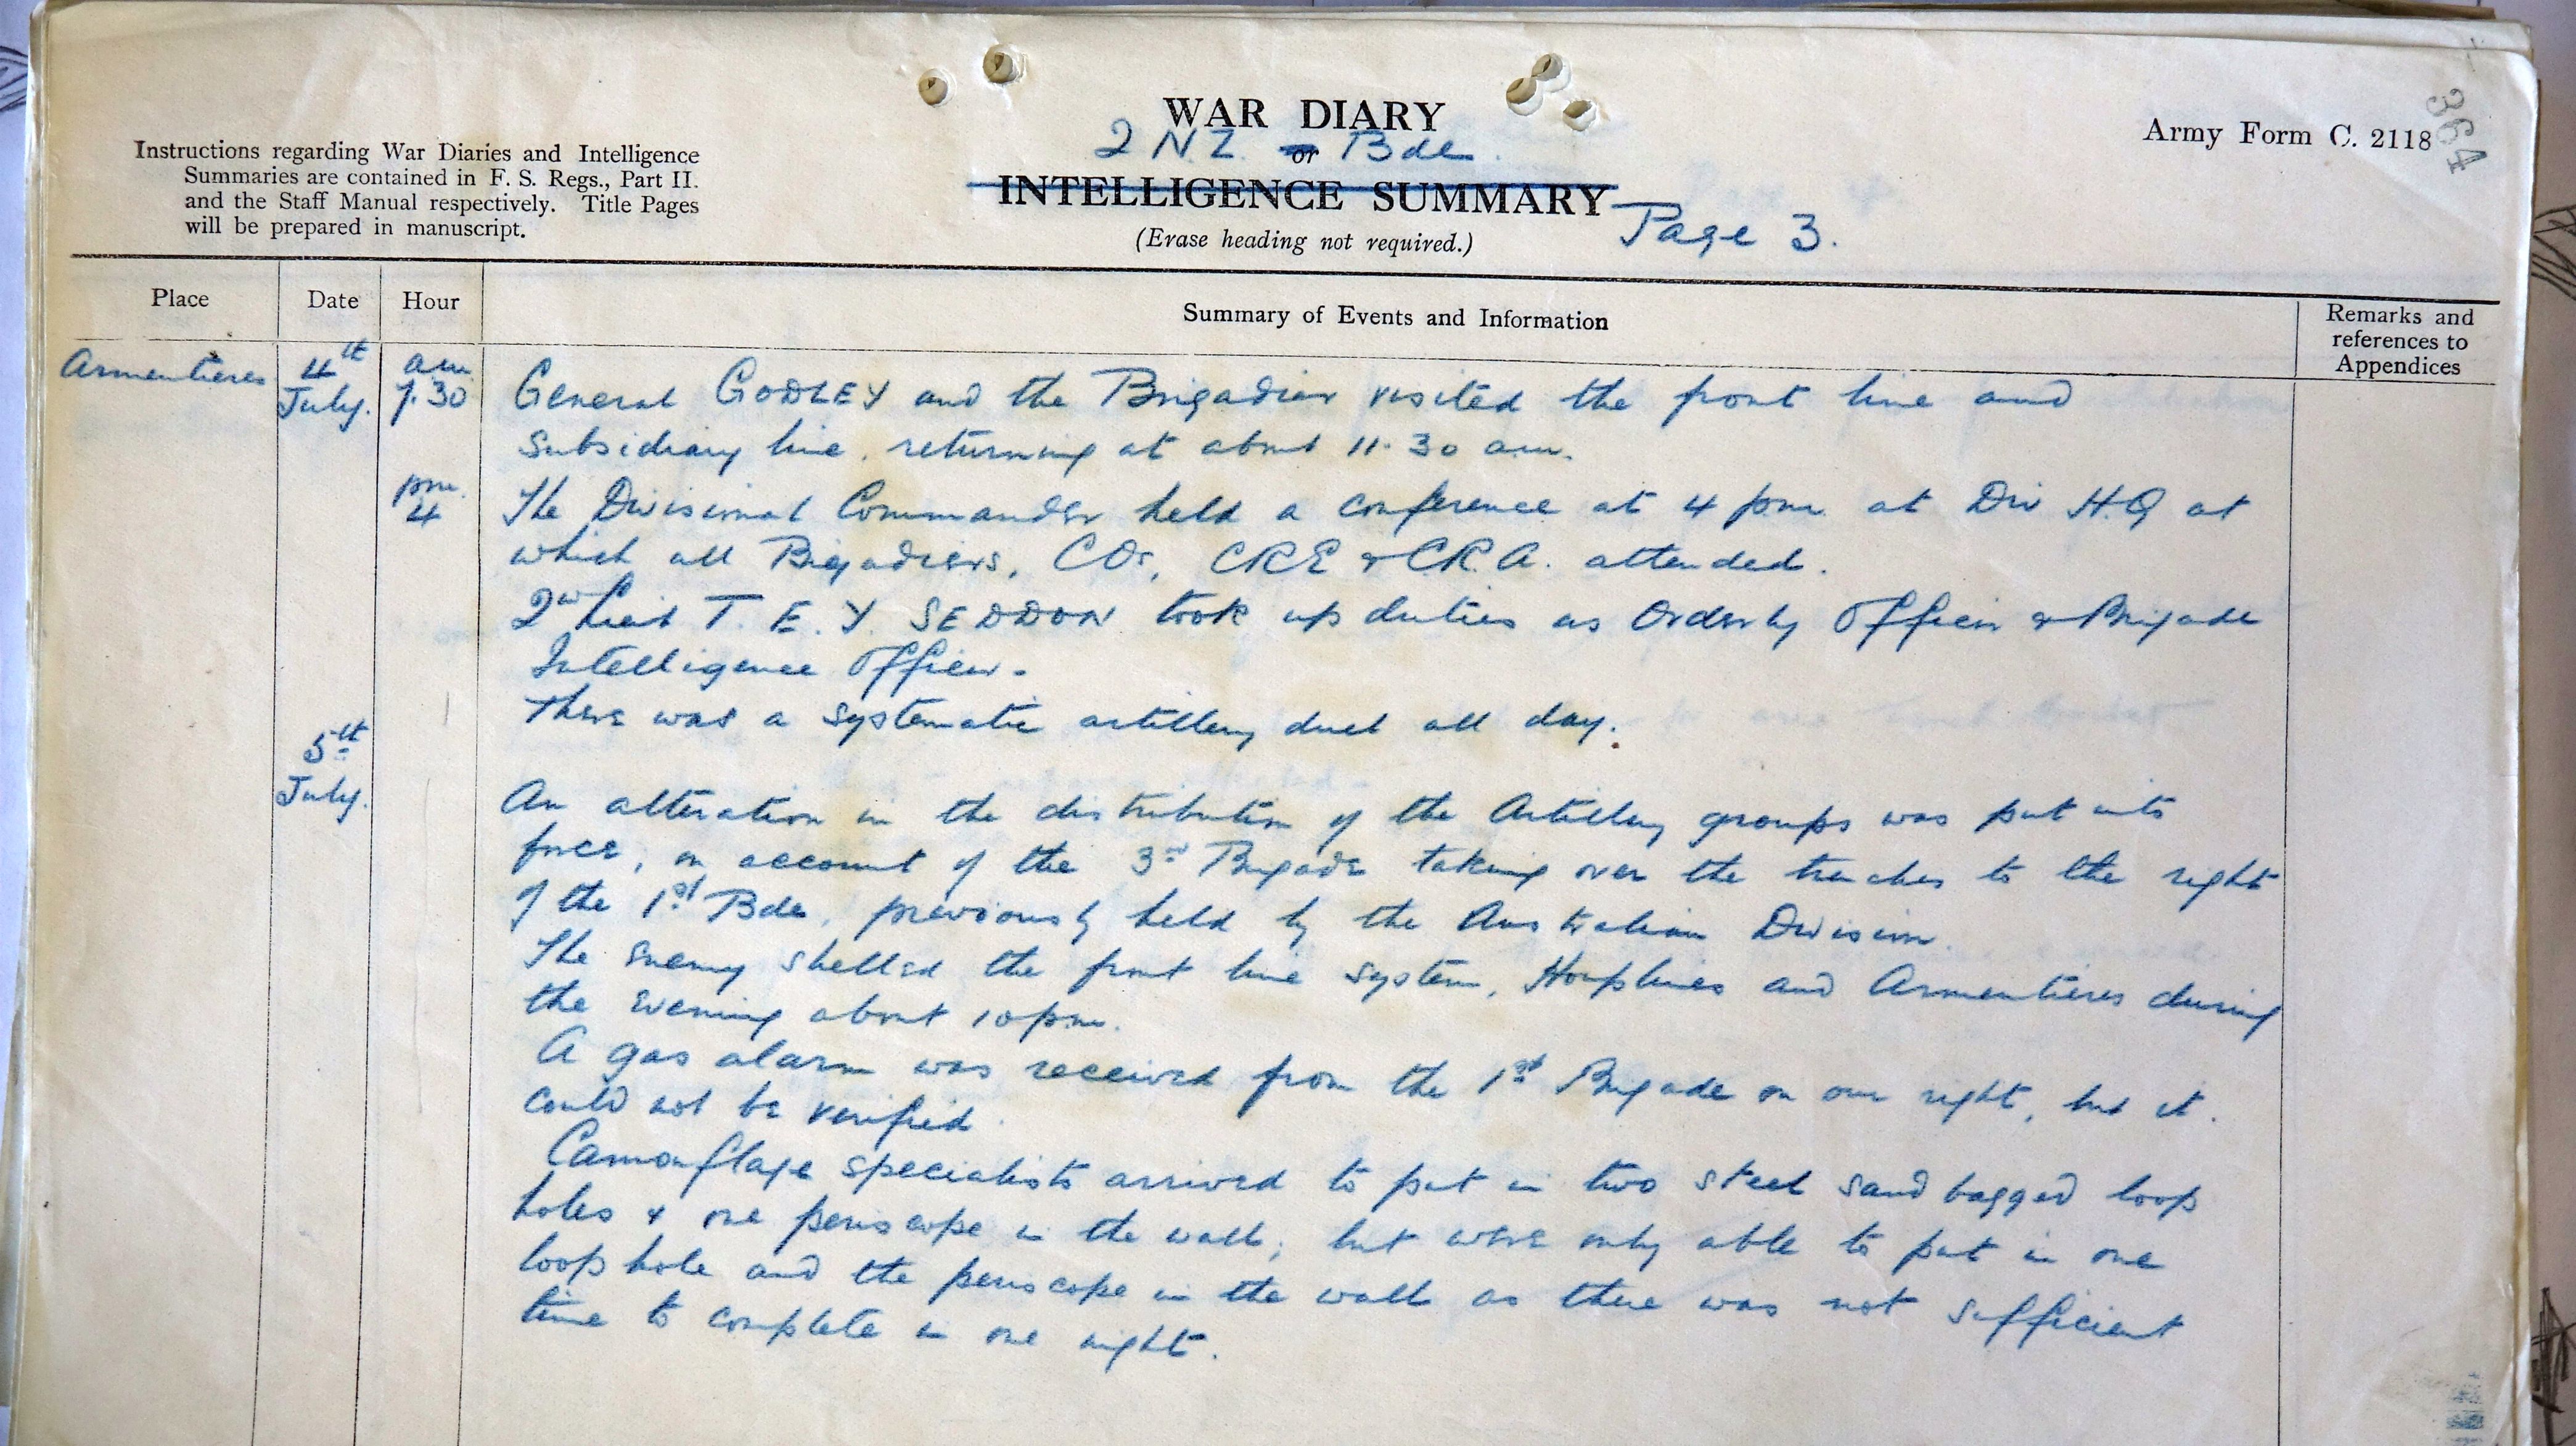 364
WAR DIARY
2 N Z or Bde.
INTELLIGENCE SUMMARY
(Erase heading not required.)
Page 3.
Army Form C. 2118
Instructions regarding War Diaries and Intelligence
Summaries are contained in F. S. Regs., Part II.
and the Staff Manual respectively. Title Pages
will be prepared in manuscript.
Place
Date
Hour
Summary of Events and Information
Remarks and
references to
Appendices
Armentieres
4th
July.
am
7.30
General GODLEY and the Brigadier visited the front line and
Subsidiary line, returning at about 11.30 am.
pm.
4
The Divisional Commander held a conference at 4 pm. at Div H.Q at
which all Brigadiers, COs, CRE & CRA. attended.
2nd Lieut T. E. Y. SEDDON took up duties as Orderly Officer & Brigade
Intelligence Officer.
There was a systematic artillery duel all day.
5th
July.
An alteration in the distribution of the Artillery groups was put into
force, on account of the 3rd Brigade taking over the trenches to the right
of the 1st Bde, previously held by the Australian Division.
The enemy shelled the front line system, Houplines and Armentieres during
the evening about 10 pm.
A gas alarm was received from the 1st Brigade on our right, but it
could not be verified.
Camouflage specialists arrived to put in two steel sand bagged loop
holes & one periscope in the wall; but were only able to put in one
loop hole and the periscope in the wall as there was not sufficient
time to complete in one night.